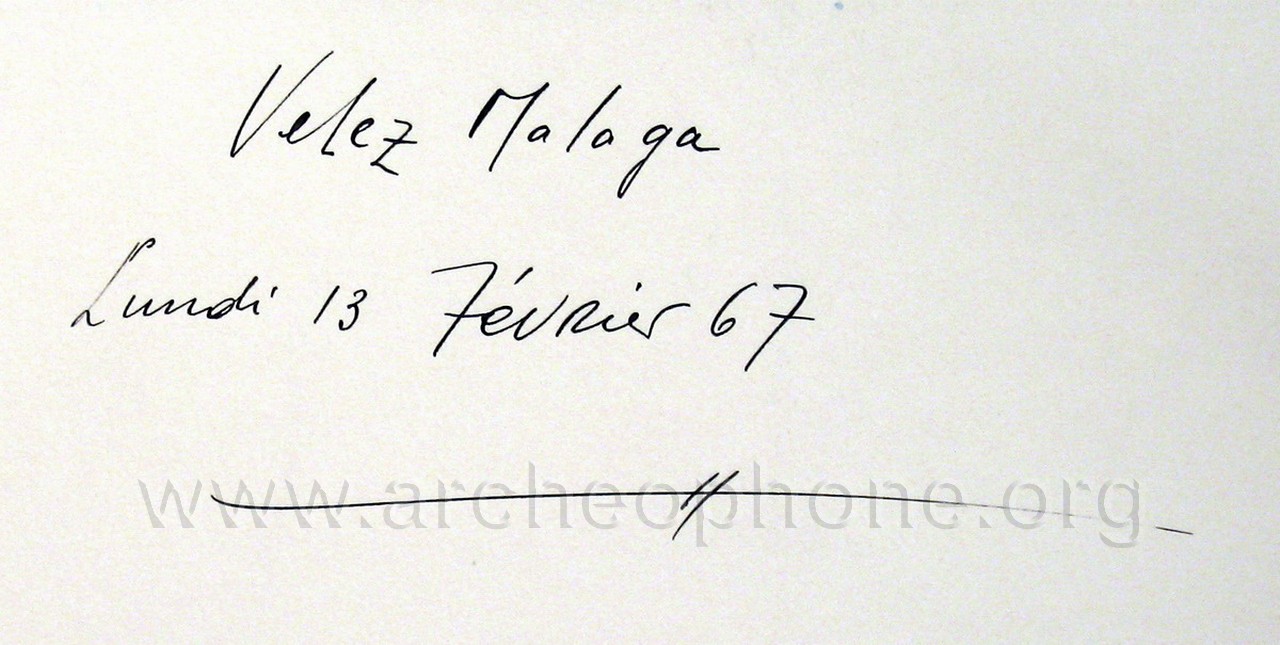 Velez Malaga
Lundi 13 Février 67
www.archeophone.org